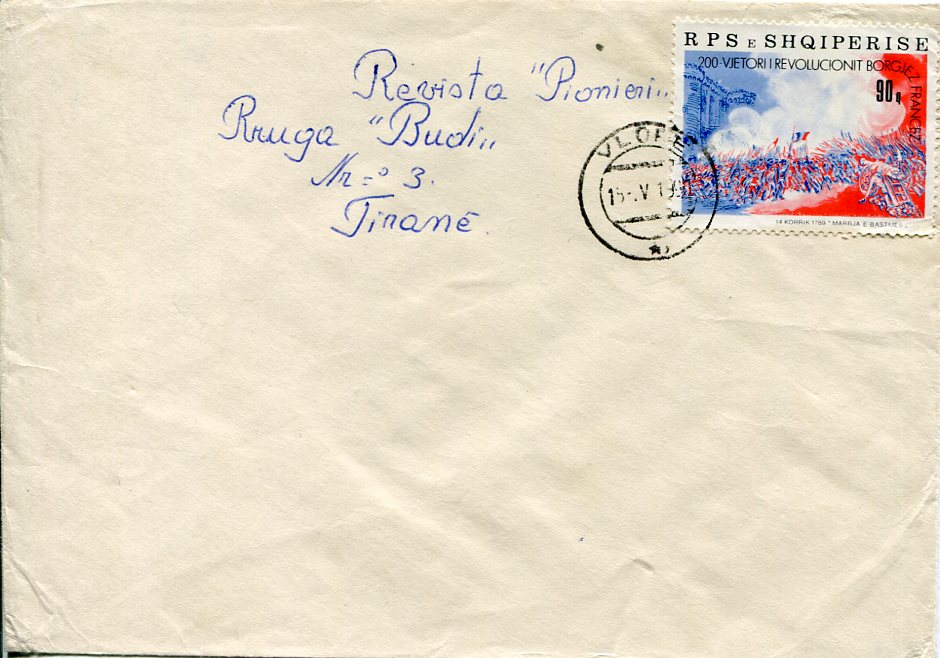 Revista "Pionieri"
Rruga "Budi"
Nr=º 3.
Tiranë
RPS E SHQIPERISE
200-VJETORI I REVOLUCIONIT BORGJEZ FRANCEZ
90 q
14 KORRIK 1789 "MARRJA E BASTIJES"
VLORË